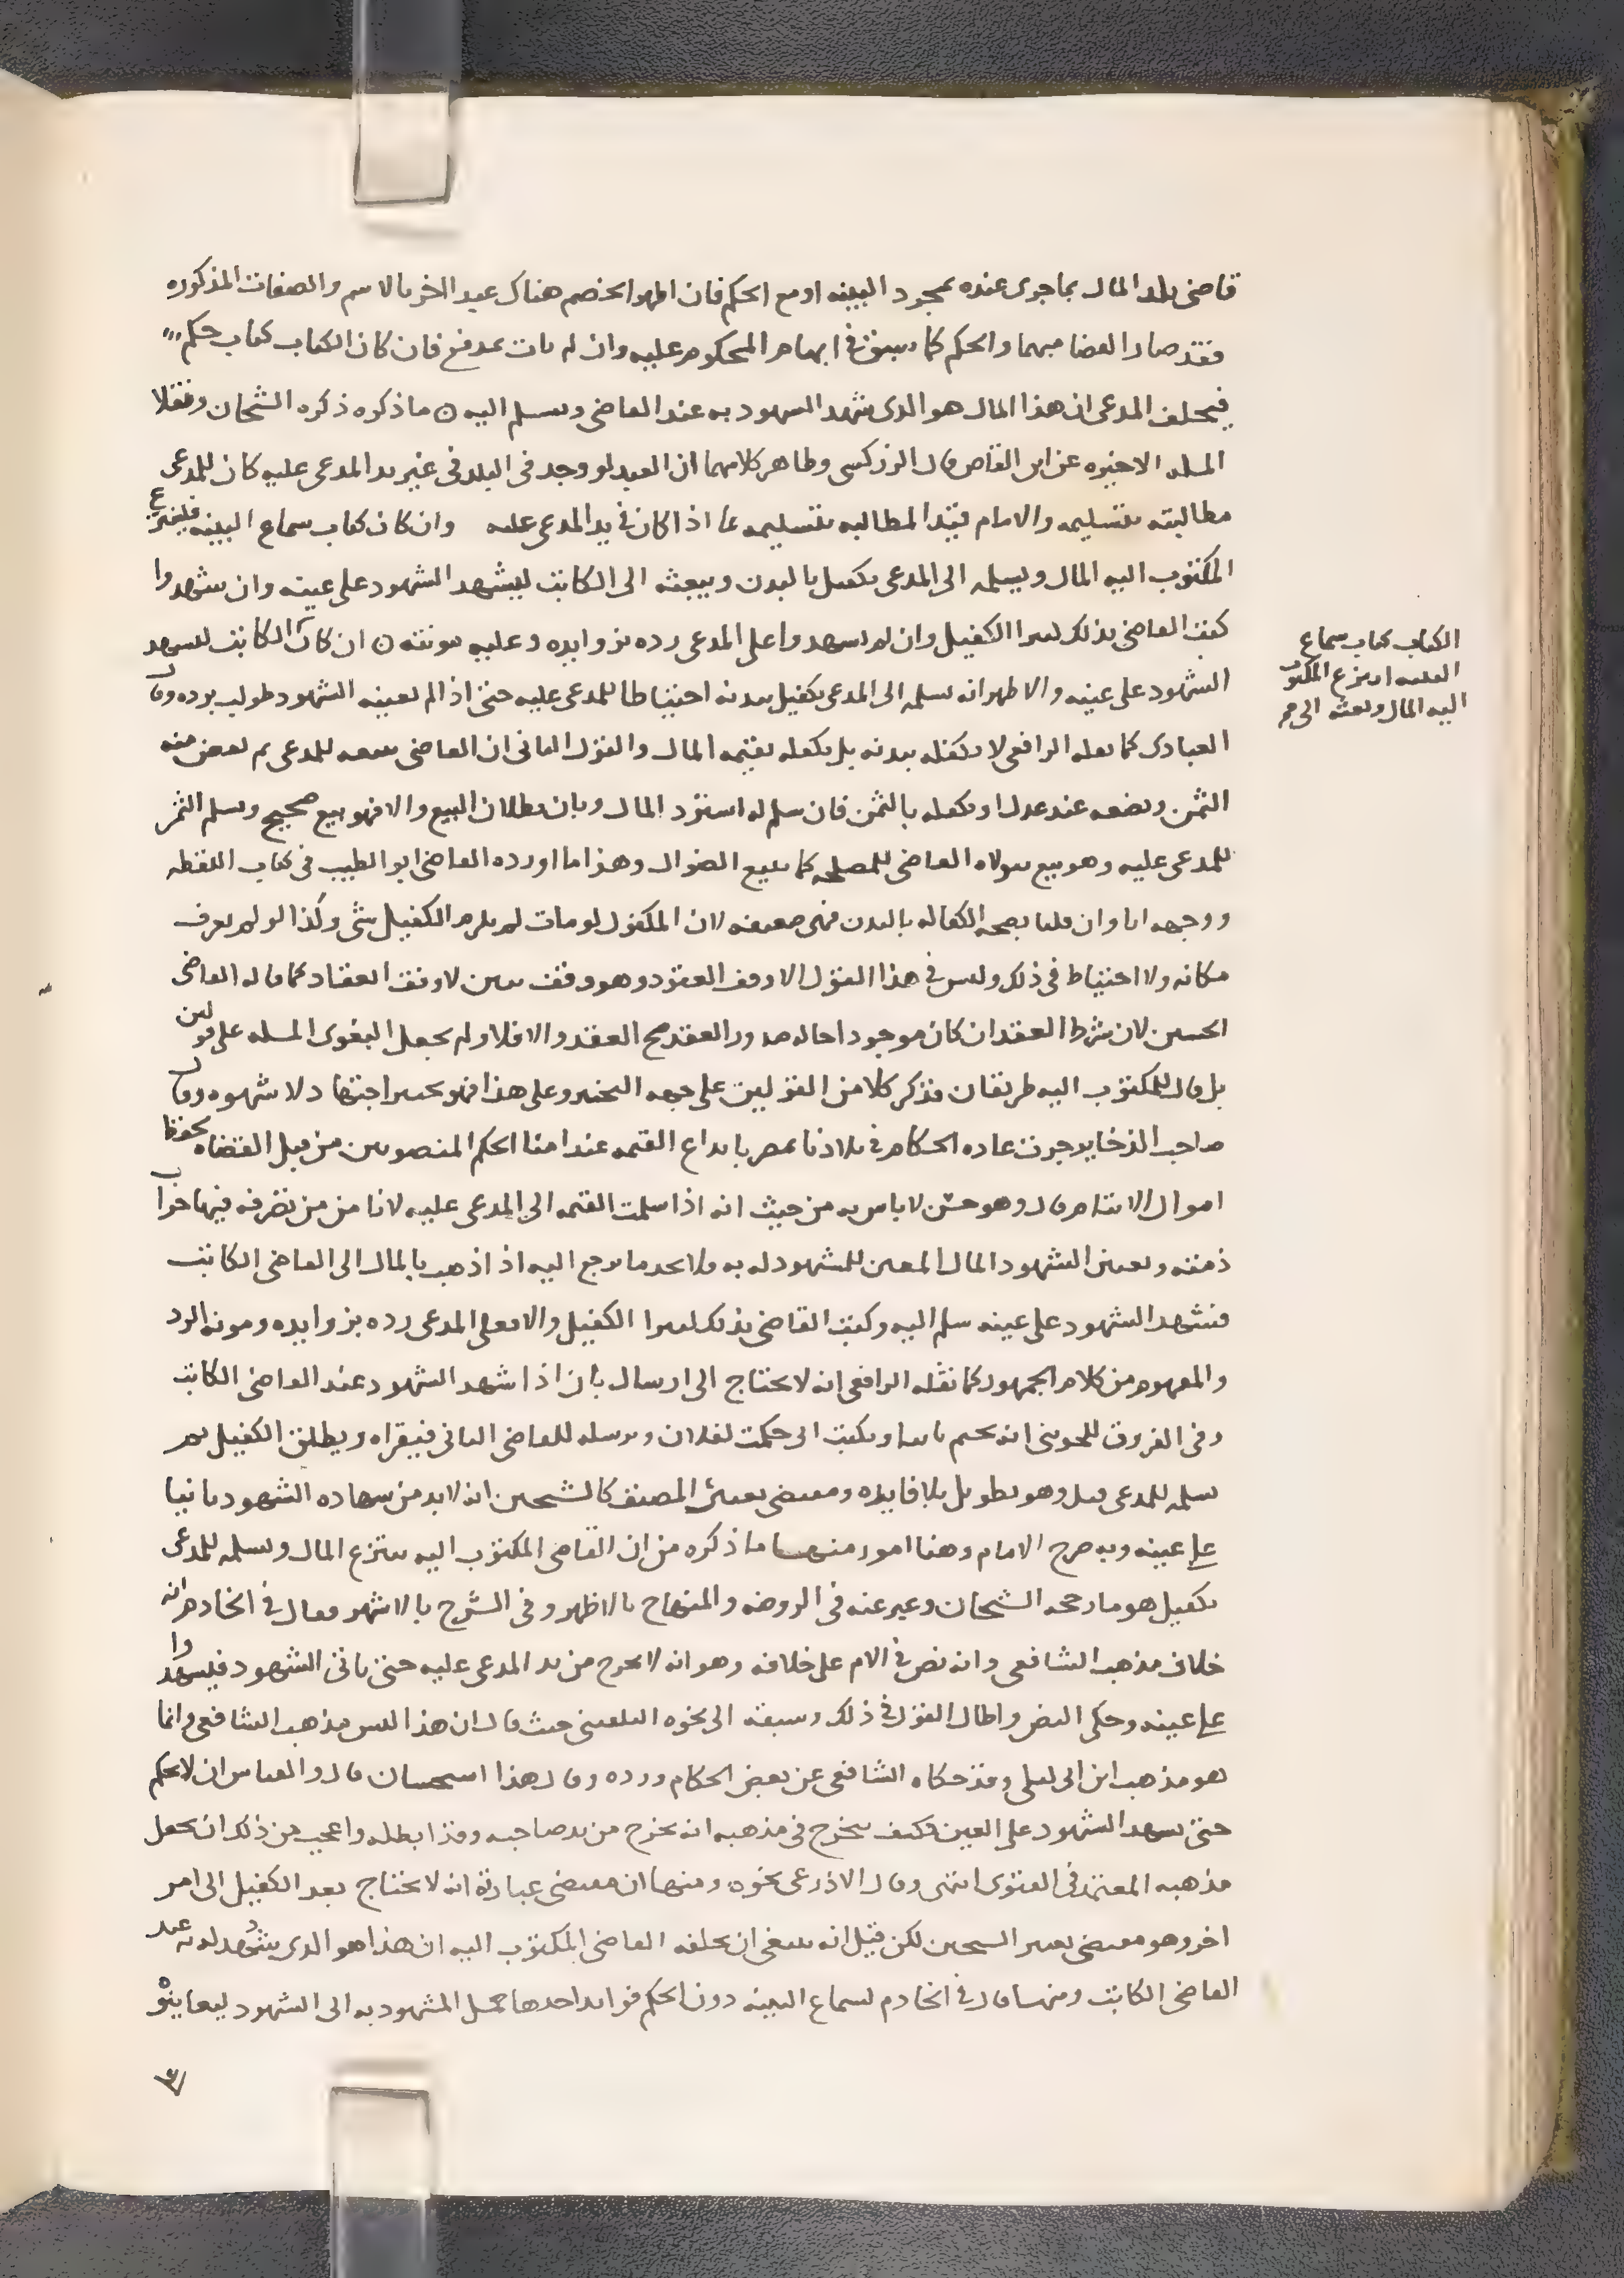 قاضى بلد المال بما جرى عنده بمجرد البينه او مع الحكم فان اظهر الخصم هناك عبدا اخر بالاسم والصفات المذكوره
فقد صار القضا مبهما والحكم كما سبق فى ابهام المحكوم عليه وان لم يات بمدفع فان كان الكتاب كتاب حكم
فيحلف المدعى ان هذا المال هو الذى شهد الشهود به عند القاضى ويسلم اليه ن ما ذكره ذكره الشيخان ونقلا
المسله الاخيره عن ابن القاص قال الزركشى وظاهر كلامهما ان العبد لو وجد فى البلد فى غير يد المدعى عليه كان للمدعى
مطالبته بتسليمه والامام قيد المطالبه بتسليمه بما اذا كان فى يد المدعى عليه وان كان كتاب سماع البينه فلينتزع
المكتوب اليه المال ويسلمه الى المدعى بكفيل بالبدن ويبعثه الى الكاتب ليشهد الشهود على عينه وان شهدوا
كتب القاضى بذلك لبرا الكفيل وان لم يشهدوا على المدعى رده بزوايده وعليه مونته ن ان كان الكاتب ليشهد
الشهود على عينه والاظهر انه يسلمه الى المدعى بكفيل ببدنه احتياطا للمدعى عليه حتى اذا لم يعينه الشهود طولب برده وقال
العبادى كما نقله الرافعى لا يكفله ببدنه بل يكفله بقيمه المال والقول الثانى ان القاضى يبيعه للمدعى ثم يقبض منه
الثمن ويضعه عند عدل او يكفله بالثمن فان سلم له استرد المال وبان بطلان البيع والا فهو بيع صحيح ويسلم الثمن
للمدعى عليه وهو بيع يتولاه القاضى للمصلحه كما يبيع الضوال وهذا ما اورده القاضى ابو الطيب فى كتاب اللقطه
ووجهه انا وان قلنا بصحه الكفاله بالبدن فهى ضعيفه لان المكفول لو مات لم يلزم الكفيل شى وكذا لو لم يعرف
مكانه ولا احتياط فى ذلك وليس فى هذا القول الا وقف العقود وهو وقف تبين لا وقف انعقاد كما قاله القاضى
الحسين لان شرط العقد ان كان موجودا حاله صدور العقد صح العقد والا فلا ولم يجعل البغوى المسله على قولين
بل قال للمكتوب اليه طريقان فذكر كلا من القولين على جهه التخير وعلى هذا فهو تخير اجتهاد لا شهوه وقال
صاحب الذخاير جرت عاده الحكام فى بلادنا بمصر بايداع القيمه عند امنا الحكم المنصوبين من قبل القضاه بحفظ
اموال الايتام قال وهو حسن لا باس به من حيث انه اذا سلمت القيمه الى المدعى عليه لا نامن من تصرفه فيها خراب
ذمته وتعين الشهود المال المعين للمشهود له به فلا يجد ما يرجع اليه اذا ذهب بالمال الى القاضى الكاتب
فشهد الشهود على عينه سلم اليه وكتب القاضى بذلك لبرا الكفيل والا فعلى المدعى رده بزوايده ومونه الرد
والمفهوم من كلام الجمهور كما نقله الرافعى انه لا يحتاج الى ارسال ثان اذا شهد الشهود عند القاضى الكاتب
وفى الفروق للجوينى انه يختم ثانيا ويكتب انى حكمت لفلان ويرسله للقاضى الثانى فيقراه ويطلق الكفيل ثم
يسلمه للمدعى قيل وهو تطويل بلا فايده ومقتضى تعبير المصنف كالشيخين انه لا بد من شهاده الشهود ثانيا
على عينه وبه صرح الامام وهنا امور منها ما ذكره من ان القاضى المكتوب اليه ينتزع المال ويسلمه للمدعى
بكفيل هو ما رجحه الشيخان وعبر عنه فى الروضه والمنهاج بالاظهر وفى الشرح بالاشهر فقال فى الخادم انه
خلاف مذهب الشافعى وانه نص فى الام على خلافه وهو انه لا يخرج من يد المدعى عليه حتى ياتى الشهود فيشهدوا
على عينه وحكى النص واطال القول فى ذلك وسبقه الى نحوه البلقينى حيث قال ان هذا ليس مذهب الشافعى وانما
هو مذهب ابن ابى ليلى وقد حكاه الشافعى عن بعض الحكام ورده وقال هذا استحسان قال والقياس ان لا يحكم
حتى يشهد الشهود على العين فكيف يخرج فى مذهبه انه يخرج من يد صاحبه وقد ابطله واعجب من ذلك ان يجعل
مذهبه المعتمد فى الفتوى انتهى وقال الاذرعى نحوه ومنها ان مقتضى عبارته انه لا يحتاج بعد الكفيل الى امر
اخر وهو مقتضى تعبير الشيخين لكن قيل انه ينبغى ان يحلفه القاضى المكتوب اليه ان هذا هو الذى شهد له به عند
القاضى الكاتب ومنها قال فى الخادم لسماع البينه دون الحكم فوايد احدها حمل المشهود به الى الشهود ليعاينوه
الكتاب كتاب سماع
البينه انتزع المكتوب
اليه المال وبعثه الى